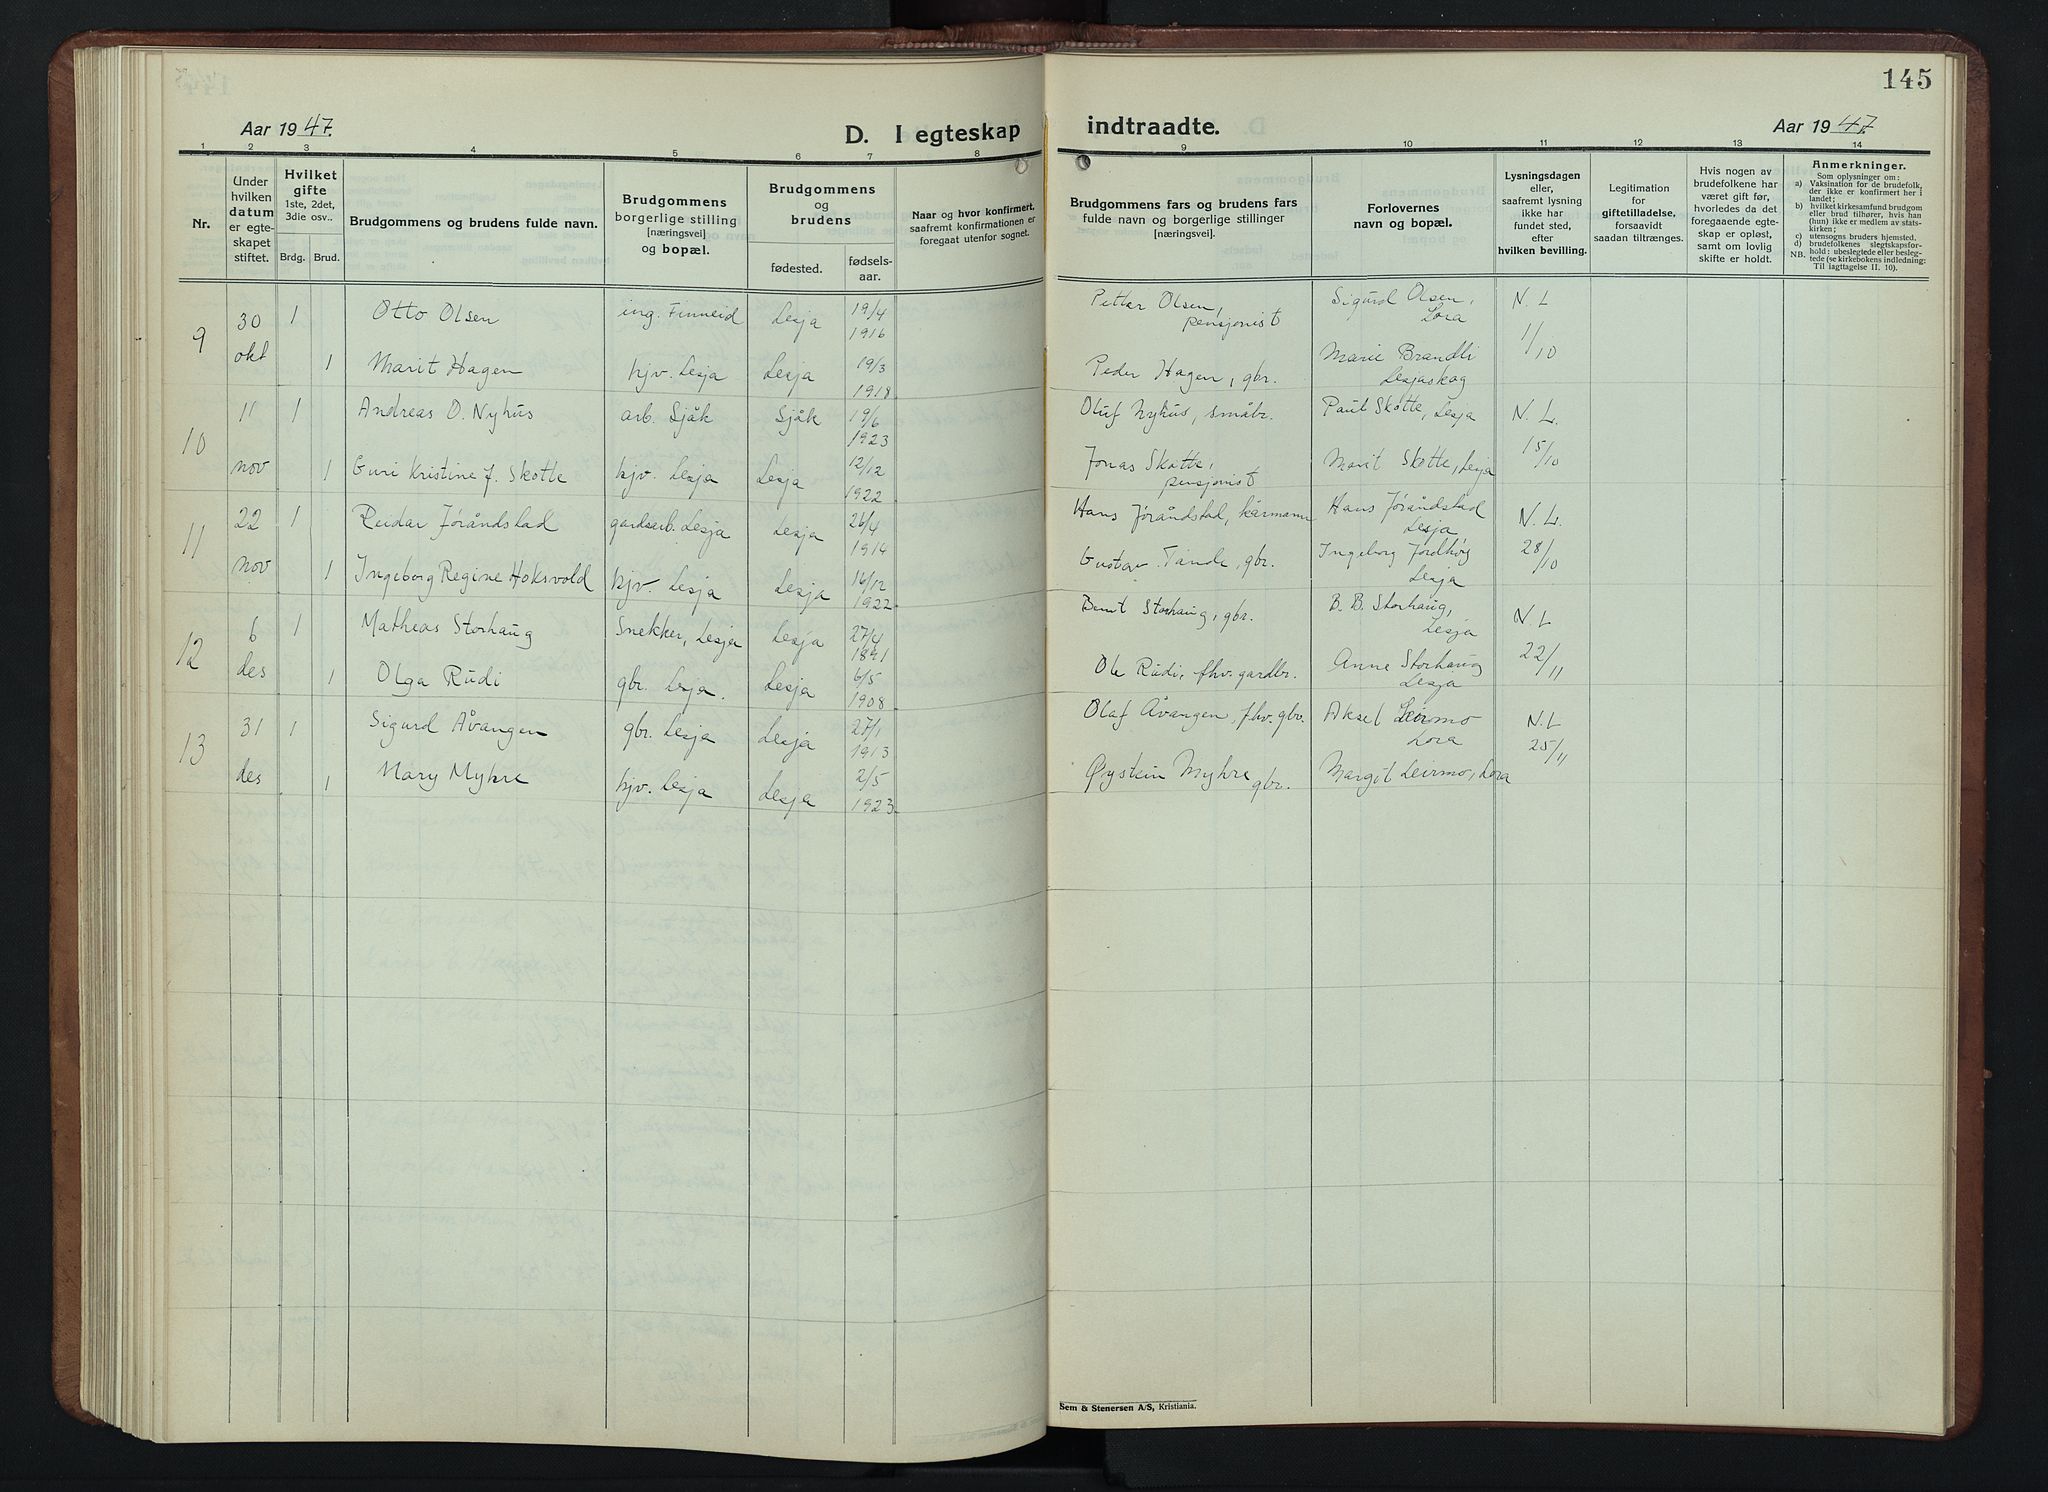 145
Aar 1947.
D. I egteskap indtraadte.
Aar 1947.
1 2 3 4 5 6 7 8 9 10 11 12 13 14
Nr.
Under hvilken datum er egteskapet stiftet.
Hvilket gifte 1ste, 2det, 3die osv..
Brdg. Brud.
Brudgommens og brudens fulde navn.
Brudgommens borgerlige stilling [næringsvei] og bopæl.
Brudgommens og brudens
fødested. fødselsaar.
Naar og hvor konfirmert, saafremt konfirmationen er foregaat utenfor sognet.
Brudgommens fars og brudens fars fulde navn og borgerlige stillinger [næringsvei].
Forlovernes navn og bopæl.
Lysningsdagen eller, saafremt lysning ikke har fundet sted, efter hvilken bevilling.
Legitimation for giftetilladelse, forsaavidt saadan tiltrænges.
Hvis nogen av brudefolkene har været gift før, hvorledes da det foregaaende egteskap er opløst, samt om lovlig skifte er holdt.
Anmerkninger.
Som oplysninger om:
a) Vaksination for de brudefolk, der ikke er konfirmert her i landet;
b) hvilket kirkesamfund brudgom eller brud tilhører, hvis han (hun) ikke er medlem av statskirken;
c) utensogns bruders hjemsted.
d) brudefolkenes slegtskapsforhold: ubeslegtede eller beslegtede (se kirkebokens indledning: Til iagttagelse II, 10).
NB.
9 30 okt 1 Otto Olsen ing. Finneid Lesja 19/4 1916 Petter Olsen, pensjonist Sigurd Olsen, Lora N. L 1/10
1 Marit Hagen hjv. Lesja Lesja 19/3 1918 Peder Hagen, gbr. Marie Brandli Lesjaskog
10 11 nov 1 Andreas O. Nyhus arb. Sjåk Sjåk 19/6 1923 Oluf Nyhus, småbr. Paul Skotte, Lesja N. L. 15/10
1 Guri Kristine J. Skotte hjv. Lesja Lesja 12/12 1922 Jonas Skotte, pensjonist Marit Skotte, Lesja
11 22 nov 1 Reidar Jøråndstad gardsarb. Lesja Lesja 26/4 1914 Hans Jøråndstad, kårmann Hans Jøråndstad Lesja N. L. 28/10
1 Ingeborg Regine Hoksvold hjv. Lesja Lesja 16/12 1922 Gustav Tande, gbr. Ingeborg Jordhøy Lesja
12 6 des 1 Matheas Storhaug Snekker, Lesja Lesja 27/4 1891 Bernt Storhaug, gbr. B. B. Storhaug, Lesja N. L 22/11
1 Olga Rudi gbr. Lesja. Lesja 6/5 1908 Ole Rudi, fhv. gardbr. Anne Storhaug Lesja
13 31 des 1 Sigurd Åvangen gbr. Lesja Lesja 27/1 1913 Olaf Åvangen, fhv. gbr. Aksel Leirmo Lora N. L 25/11
1 Mary Myhre hjv. Lesja Lesja 2/5 1923 Øystein Myhre gbr. Margit Leirmo, Lora
Sem & Stenersen A/S, Kristiania.